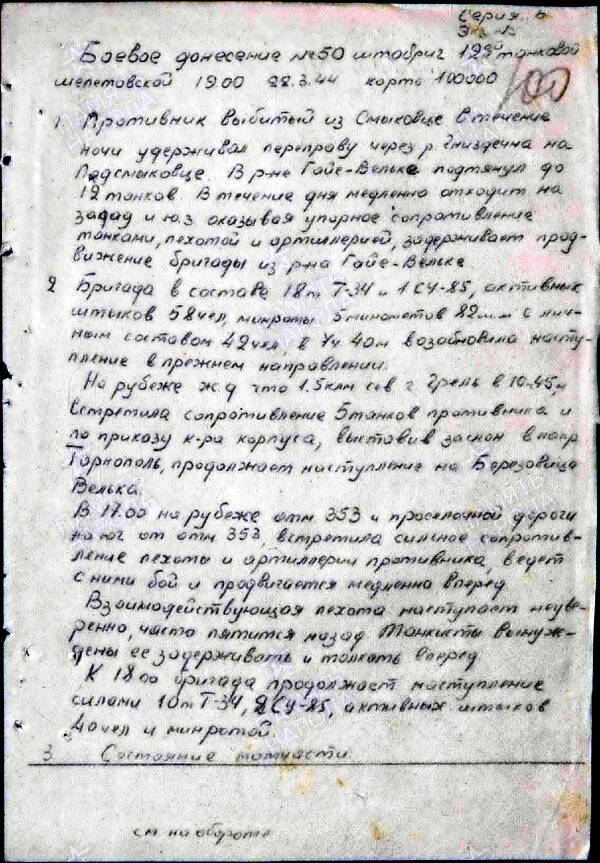 Серия. Б
Экз. №
Боевое донесение № 50 штабриг 129й танковой
шепетовской 19.00 22.3.44 карта 100000
1. Противник выбитый из Смыковце в течение
ночи удерживал переправу через р. Гниздечна на
Подсмыковце. В р-не Гайе-Вельке подтянул до
12 танков. В течение дня медленно отходит на
запад и ю.з. оказывая упорное сопротивление
танками, пехотой и артиллерией, задерживает прод-
вижение бригады из р-на Гайе-Вельке
2 Бригада в составе 18 т Т-34 и 1 СУ-85, активных
штыков 58 чел, минроты 5 минометов 82 м.м с лич-
ным составом 42 чел, в 7ч 40м возобновила насту-
пление в прежнем направлении.
На рубеже ж.д что 1.5 клм сев г. в 10-45,
встретила сопротивление 5 танков противника и
по приказу к-ра корпуса, выставив заслон в напр
Тарнополь, продолжает наступление на Березовица
Велька.
В 17.00 на рубеже отм 353 и проселочной дороги
на юг от отм 353, встретила сильное сопротив-
ление пехоты и артиллерии противника, ведет
с ними бой и продвигается медленно вперед
Взаимодействующая пехота наступает неуве-
ренно, часто пятится назад Танкисты вынуж-
дены ее задерживать и толкать вперед.
К 18.00 бригада продолжает наступление
силами 10 т Т-34, 2 СУ-85, активных штыков
40 чел и минротой.
3. Состояние матчасти
см на обороте